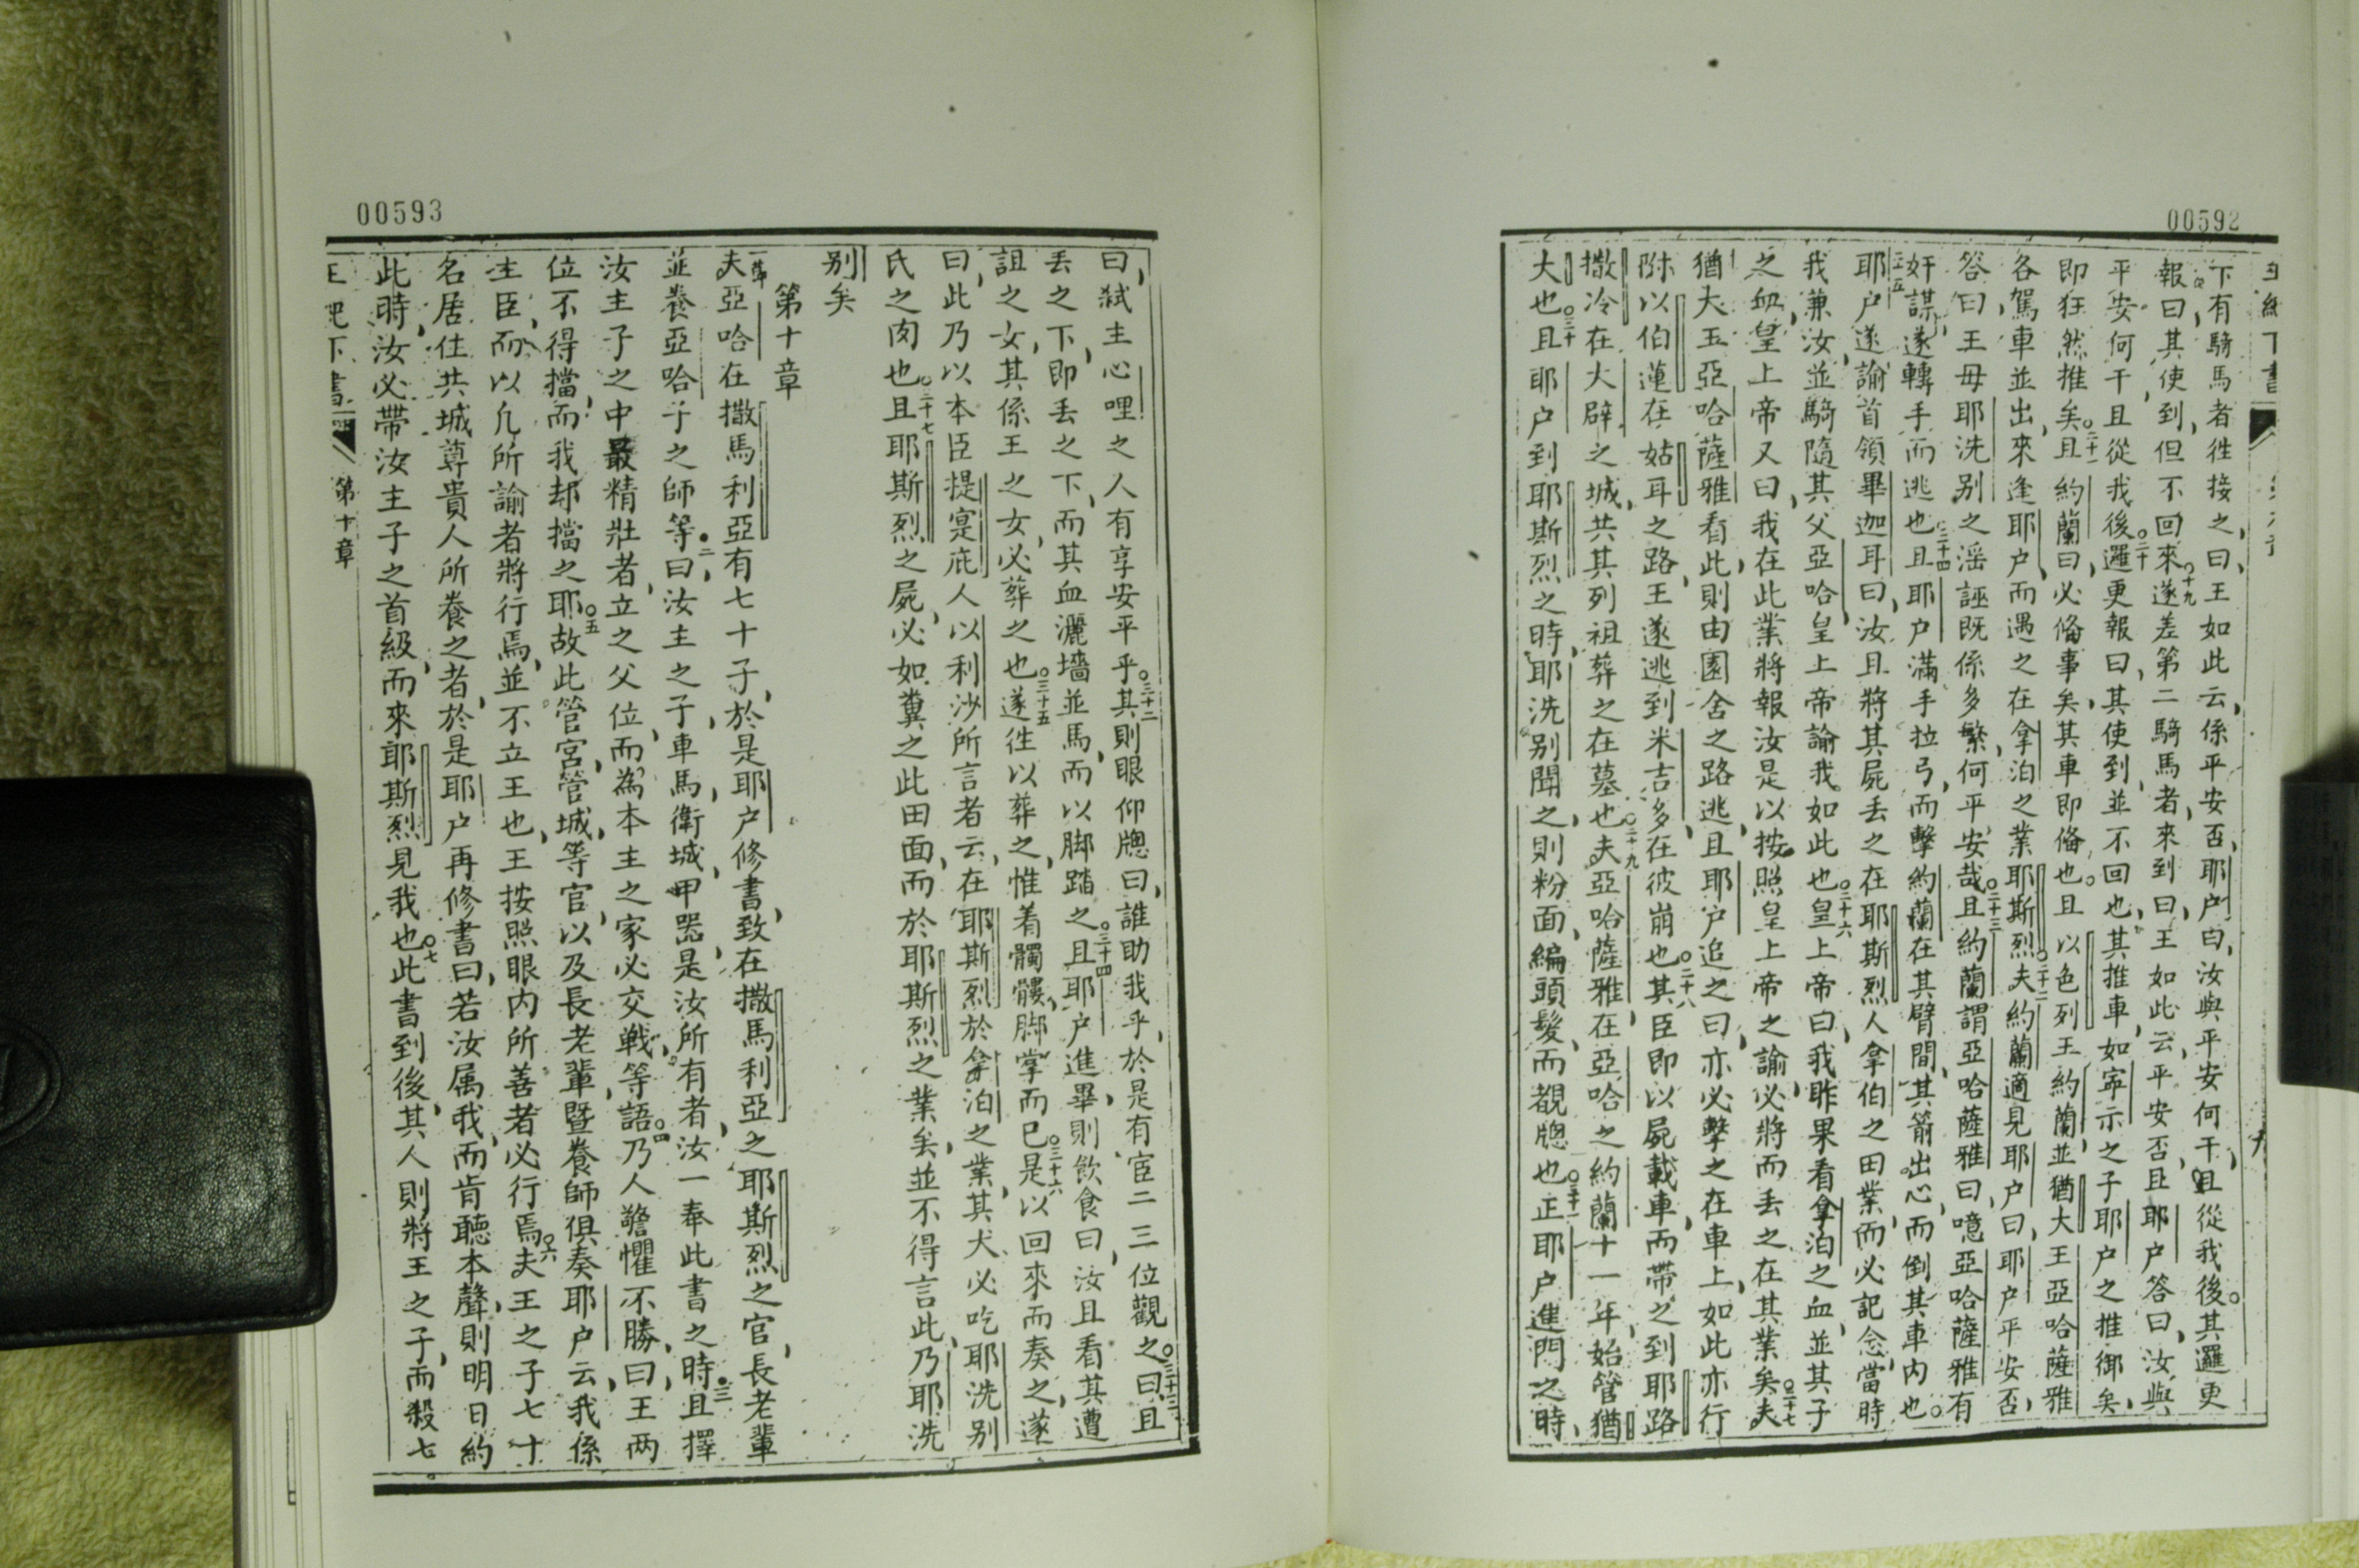 00592
下有騎馬者徃接之曰王如此云係平安否耶户曰汝與平安何干且從我後其邏更
報曰其使到但不回來○十九遂差第二騎馬者來到曰王如此云平安否且耶户答曰汝與
平安何干且從我後○二十邏更報曰其使到並不回也其推車如寕示之子耶户之推御矣
即狂然推矣○二十一且約蘭曰必俻事矣其車即俻也且以色列王約蘭並猶大王亞哈薩雅
各駕車並出來逢耶户而遇之在拿泊之業耶斯烈○二十二夫約蘭適見耶户曰耶户平安否
答曰王母耶洗别之滛誣既係多繁何平安哉○二十三且約蘭謂亞哈薩雅曰噫亞哈薩雅有
奸謀遂轉手而逃也○二十四且耶户滿手拉弓而擊約蘭在其臂間其箭出心而倒其車内也
○二十五耶户遂諭首領畢迦耳曰汝且將其屍丢之在耶斯烈人拿伯之田業而必記念當時
我兼汝並騎隨其父亞哈皇上帝諭我如此也○二十六皇上帝曰我昨果看拿泊之血並其子
之血皇上帝又曰我在此業將報汝是以按照皇上帝之諭必將而丢之在其業矣○二十七夫
猶大王亞哈薩雅看此則由園舍之路逃且耶户追之曰亦必擊之在車上如此亦行
附以伯蓮在姑耳之路王遂逃到米吉多在彼崩也○二十八其臣即以屍載車而帶之到耶路
撒冷在大辟之城共其列祖葬之在墓也○二十九夫亞哈薩雅在亞哈之約蘭十一年始管猶
大也○三十且耶户到耶斯烈之時耶洗别聞之則粉面編頭髮而覩牕也○三十一正耶户進門之時
00593
曰弒主心哩之人有享安平乎○三十二其則眼仰牕曰誰助我乎於是有宦二三位觀之○三十三曰且
丢之下即丢之下而其血灑墻並馬而以脚踏之○三十四且耶户進畢則飲食曰汝且看其遭
詛之女其係王之女必葬之也○三十五遂徃以葬之惟着髑髏脚掌而已○三十六是以回來而奏之遂
曰此乃以本臣提寔庇人以利沙所言者云在耶斯烈於拿泊之業其犬必吃耶洗别
氏之肉也○三十七且耶斯烈之屍必如糞之此田面而於耶斯烈之業矣並不得言此乃耶洗
别矣
第十章
一節夫亞哈在撒馬利亞有七十子於是耶户修書致在撒馬利亞之耶斯烈之官長老輩
並養亞哈子之師等二曰汝主之子車馬衛城甲器是汝所有者汝一奉此書之時三且擇
汝主子之中最精壯者立之父位而為本主之家必交戰等語○四乃人譫懼不勝曰王两
位不得擋而我却擋之耶○五故此管宮管城等官以及長老輩暨養師俱奏耶户云我係
主臣而以凢所諭者將行焉並不立王也王按照眼内所善者必行焉○六夫王之子七十
名居住共城尊貴人所養之者於是耶户再修書曰若汝属我而肯聽本聲則明日約
此時汝必帶汝主子之首級而來耶斯烈見我也○七此書到後其人則將王之子而殺七
第十章